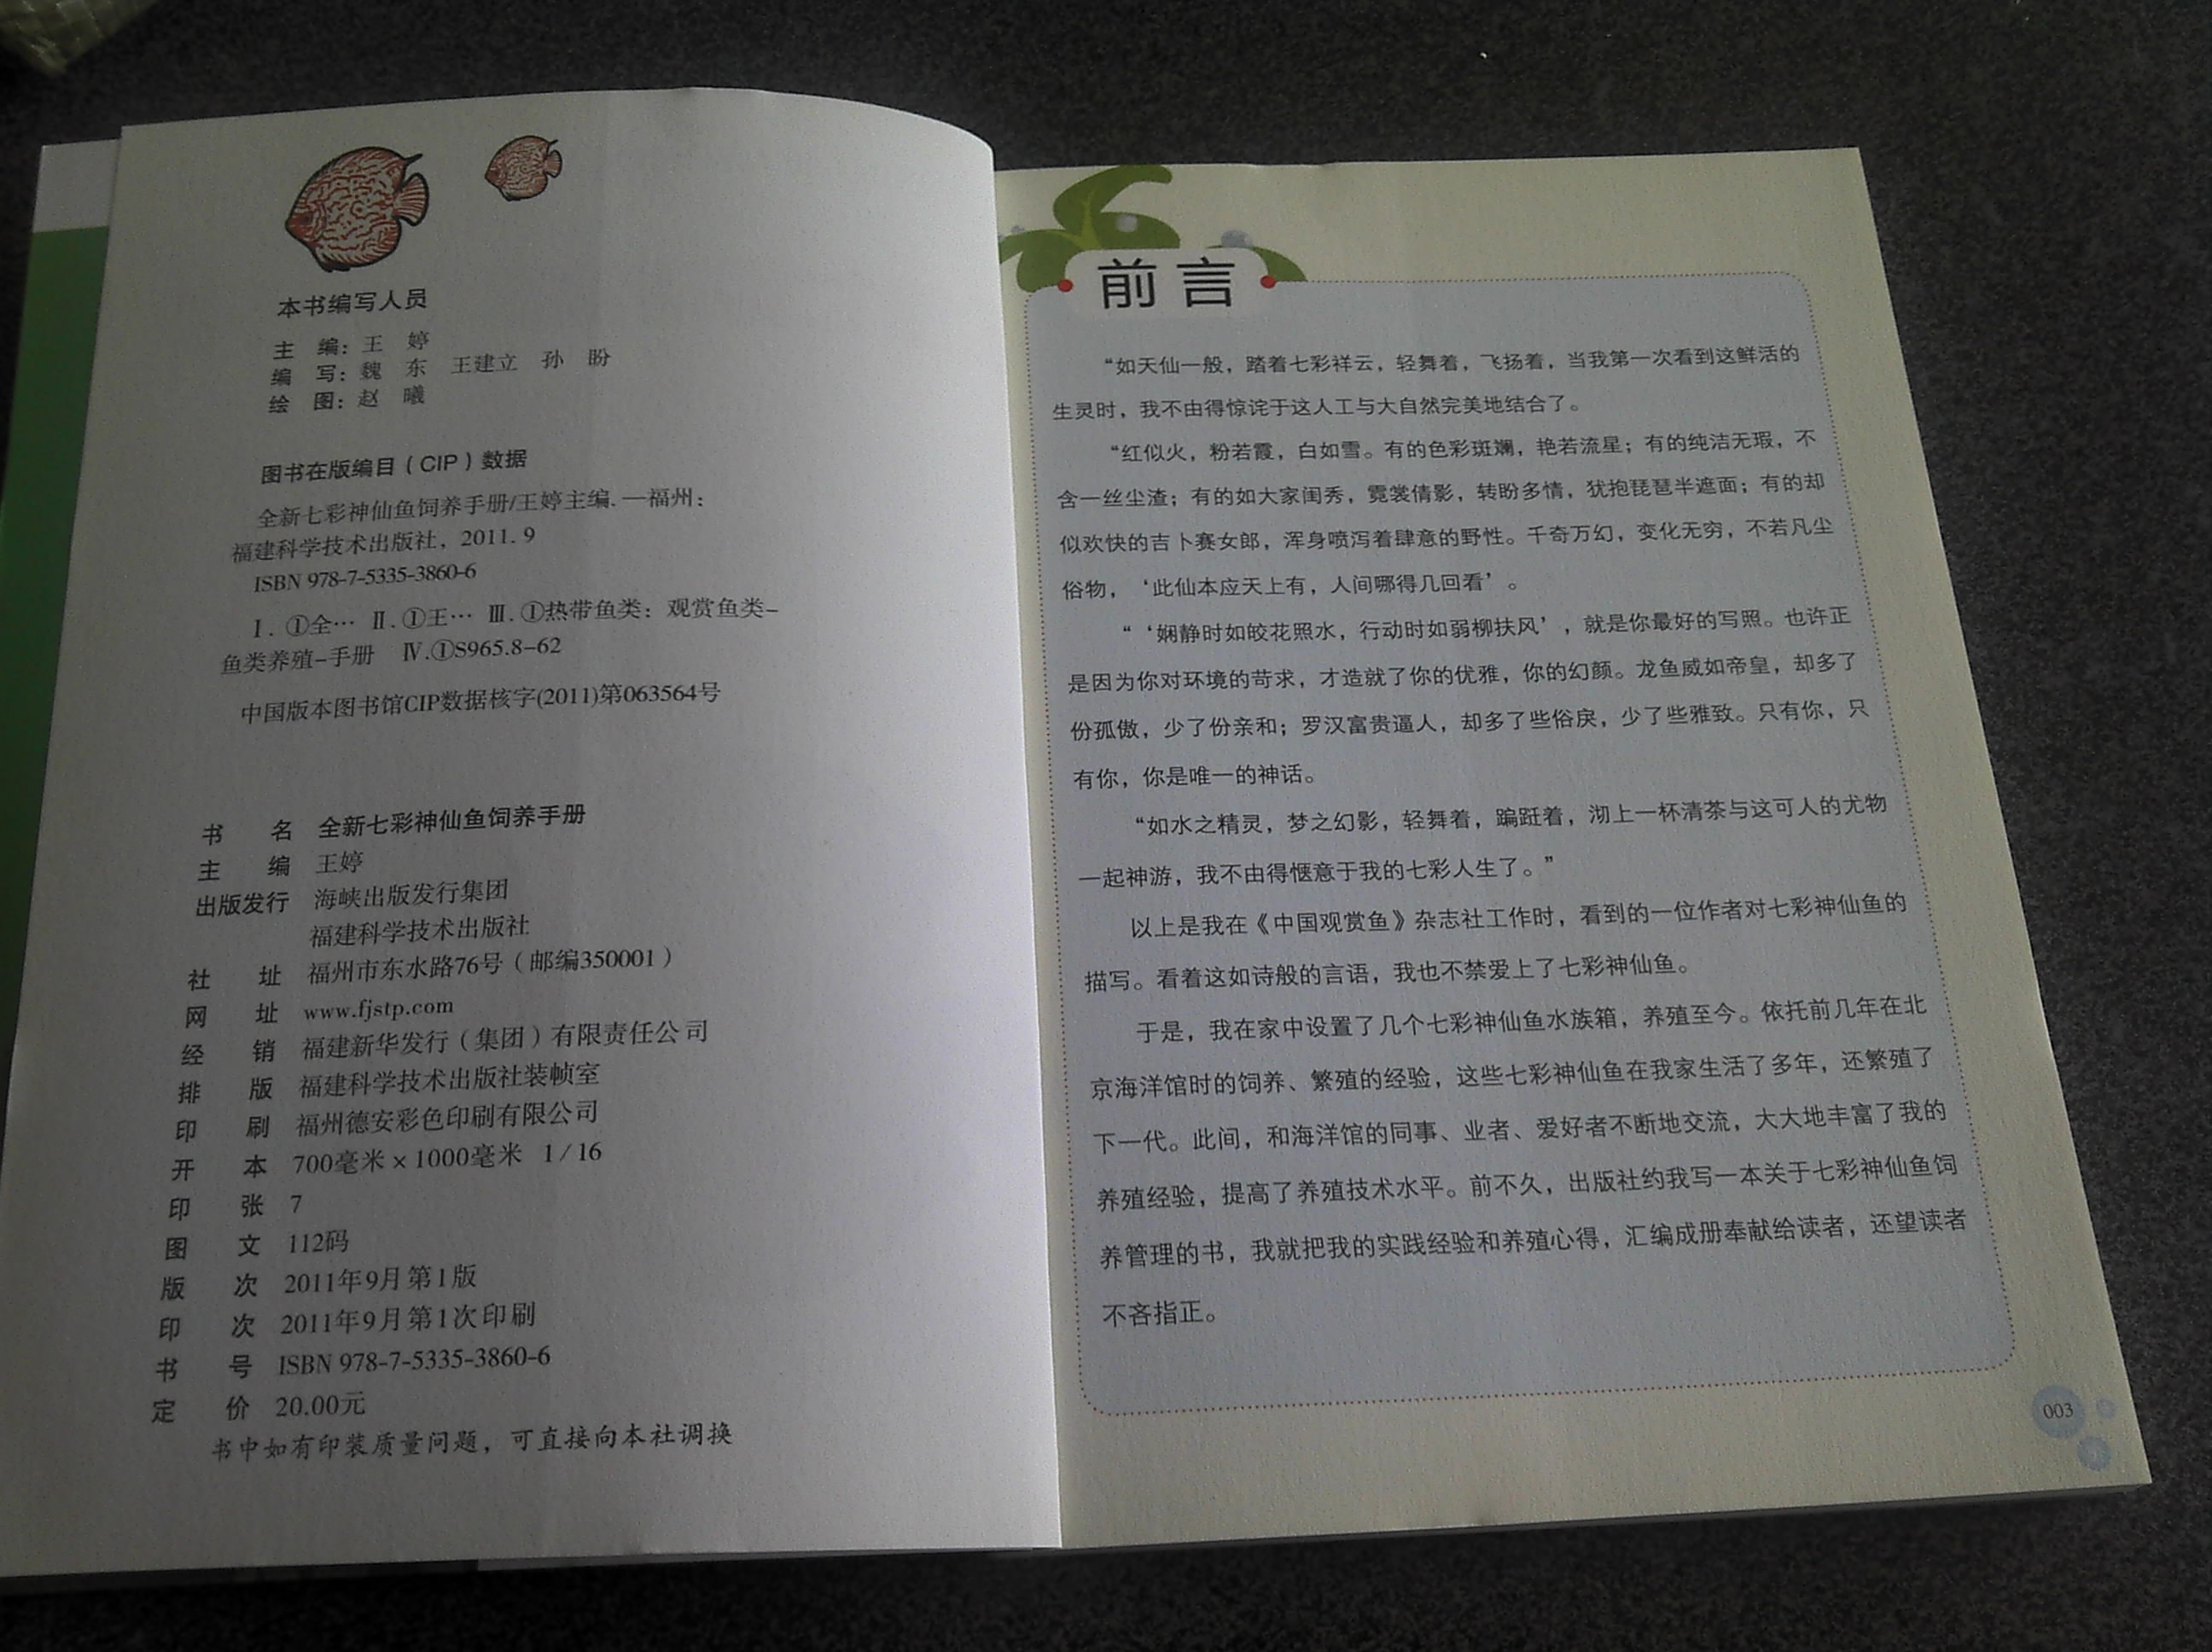 本书编写人员
主 编：王 婷
编 写：魏 东 王建立 孙 盼
绘 图：赵 曦
图书在版编目（CIP）数据
全新七彩神仙鱼饲养手册/王婷主编. —福州：
福建科学技术出版社，2011. 9
ISBN 978-7-5335-3860-6
Ⅰ. ①全… Ⅱ. ①王… Ⅲ. ①热带鱼类：观赏鱼类-
鱼类养殖-手册 Ⅳ.①S965.8-62
中国版本图书馆CIP数据核字(2011)第063564号
书 名 全新七彩神仙鱼饲养手册
主 编 王婷
出版发行 海峡出版发行集团
福建科学技术出版社
社 址 福州市东水路76号（邮编350001）
网 址 www.fjstp.com
经 销 福建新华发行（集团）有限责任公司
排 版 福建科学技术出版社装帧室
印 刷 福州德安彩色印刷有限公司
开 本 700毫米×1000毫米 1/16
印 张 7
图 文 112码
版 次 2011年9月第1版
印 次 2011年9月第1次印刷
书 号 ISBN 978-7-5335-3860-6
定 价 20.00元
书中如有印装质量问题，可直接向本社调换
前言
“如天仙一般，踏着七彩祥云，轻舞着，飞扬着，当我第一次看到这鲜活的
生灵时，我不由得惊诧于这人工与大自然完美地结合了。
“红似火，粉若霞，白如雪。有的色彩斑斓，艳若流星；有的纯洁无瑕，不
含一丝尘渣；有的如大家闺秀，霓裳倩影，转盼多情，犹抱琵琶半遮面；有的却
似欢快的吉卜赛女郎，浑身喷泻着肆意的野性。千奇万幻，变化无穷，不若凡尘
俗物，‘此仙本应天上有，人间哪得几回看’。
“‘娴静时如皎花照水，行动时如弱柳扶风’，就是你最好的写照。也许正
是因为你对环境的苛求，才造就了你的优雅，你的幻颜。龙鱼威如帝皇，却多了
份孤傲，少了份亲和；罗汉富贵逼人，却多了些俗戾，少了些雅致。只有你，只
有你，你是唯一的神话。
“如水之精灵，梦之幻影，轻舞着，蹁跹着，沏上一杯清茶与这可人的尤物
一起神游，我不由得惬意于我的七彩人生了。”
以上是我在《中国观赏鱼》杂志社工作时，看到的一位作者对七彩神仙鱼的
描写。看着这如诗般的言语，我也不禁爱上了七彩神仙鱼。
于是，我在家中设置了几个七彩神仙鱼水族箱，养殖至今。依托前几年在北
京海洋馆时的饲养、繁殖的经验，这些七彩神仙鱼在我家生活了多年，还繁殖了
下一代。此间，和海洋馆的同事、业者、爱好者不断地交流，大大地丰富了我的
养殖经验，提高了养殖技术水平。前不久，出版社约我写一本关于七彩神仙鱼饲
养管理的书，我就把我的实践经验和养殖心得，汇编成册奉献给读者，还望读者
不吝指正。
003